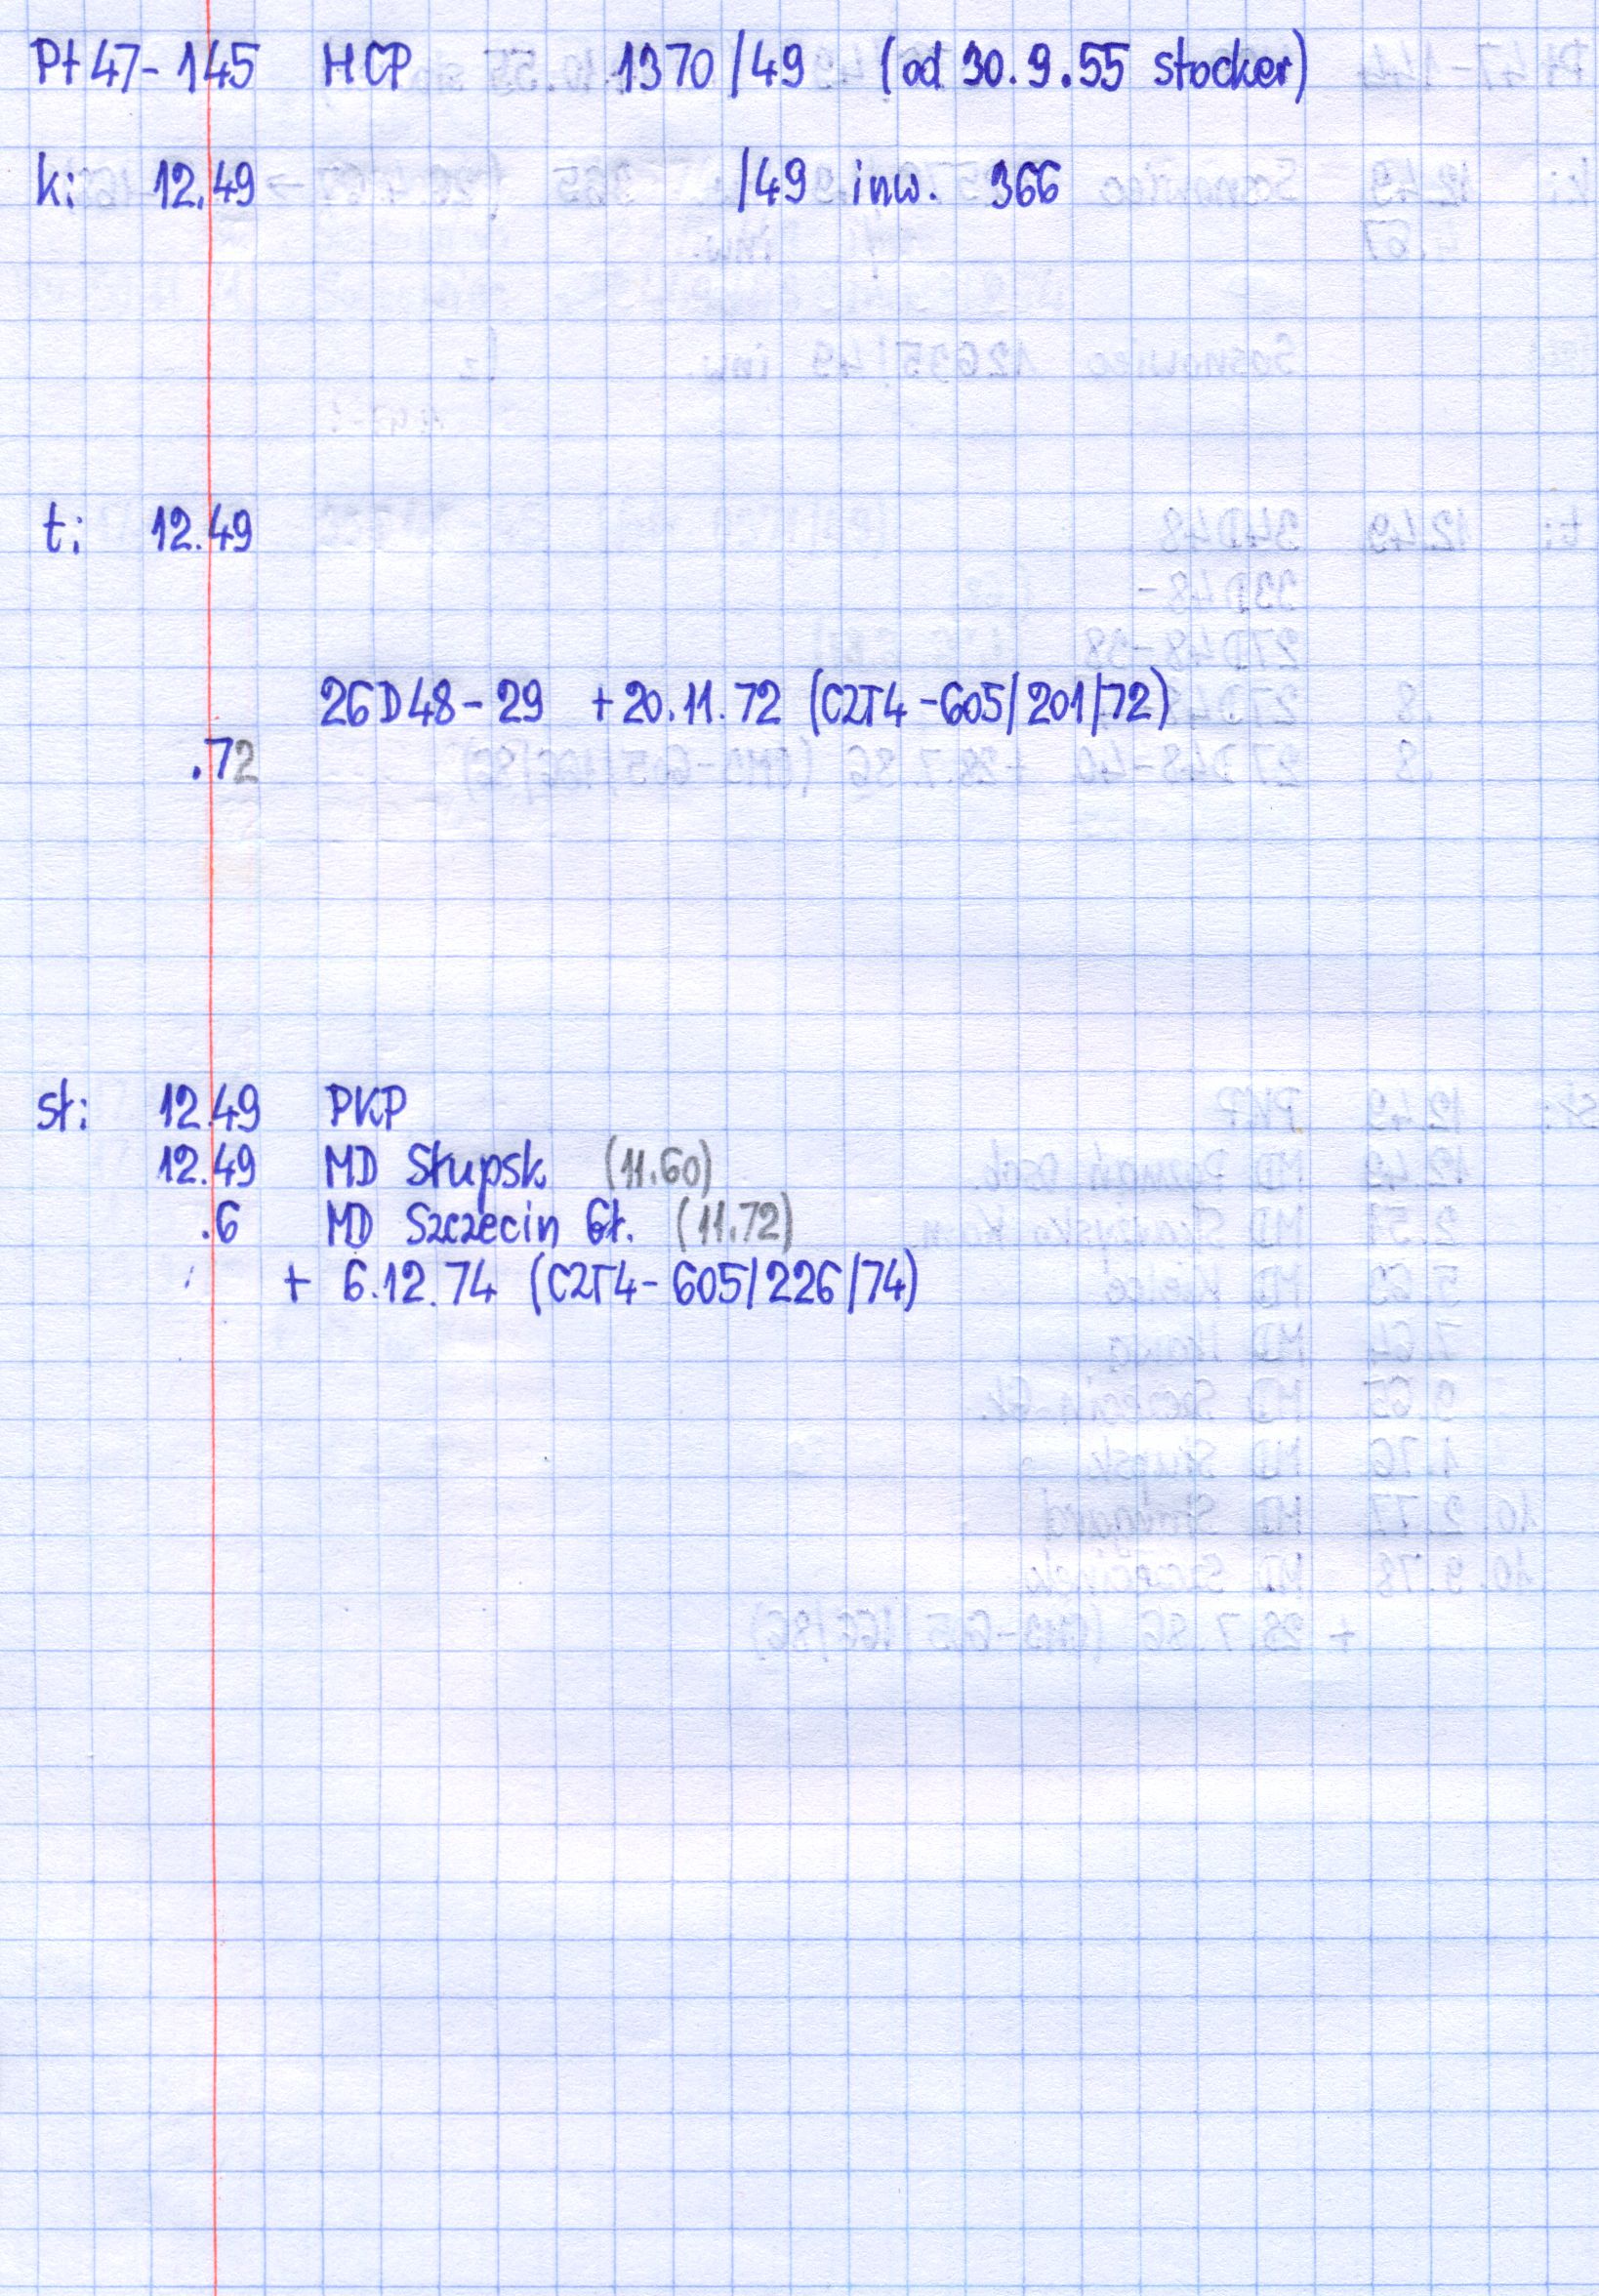 Pt47-145 HCP 1370/49 (od 30.9.55 stocker)
k: 12.49 /49 inw. 366
t: 12.49
26D48-29 +20.11.72 (C2T4-605/201/72)
.72
st: 12.49 PKP
12.49 MD Słupsk (11.60)
.6 MD Szczecin Gł. (11.72)
+ 6.12.74 (C2T4-605/226/74)